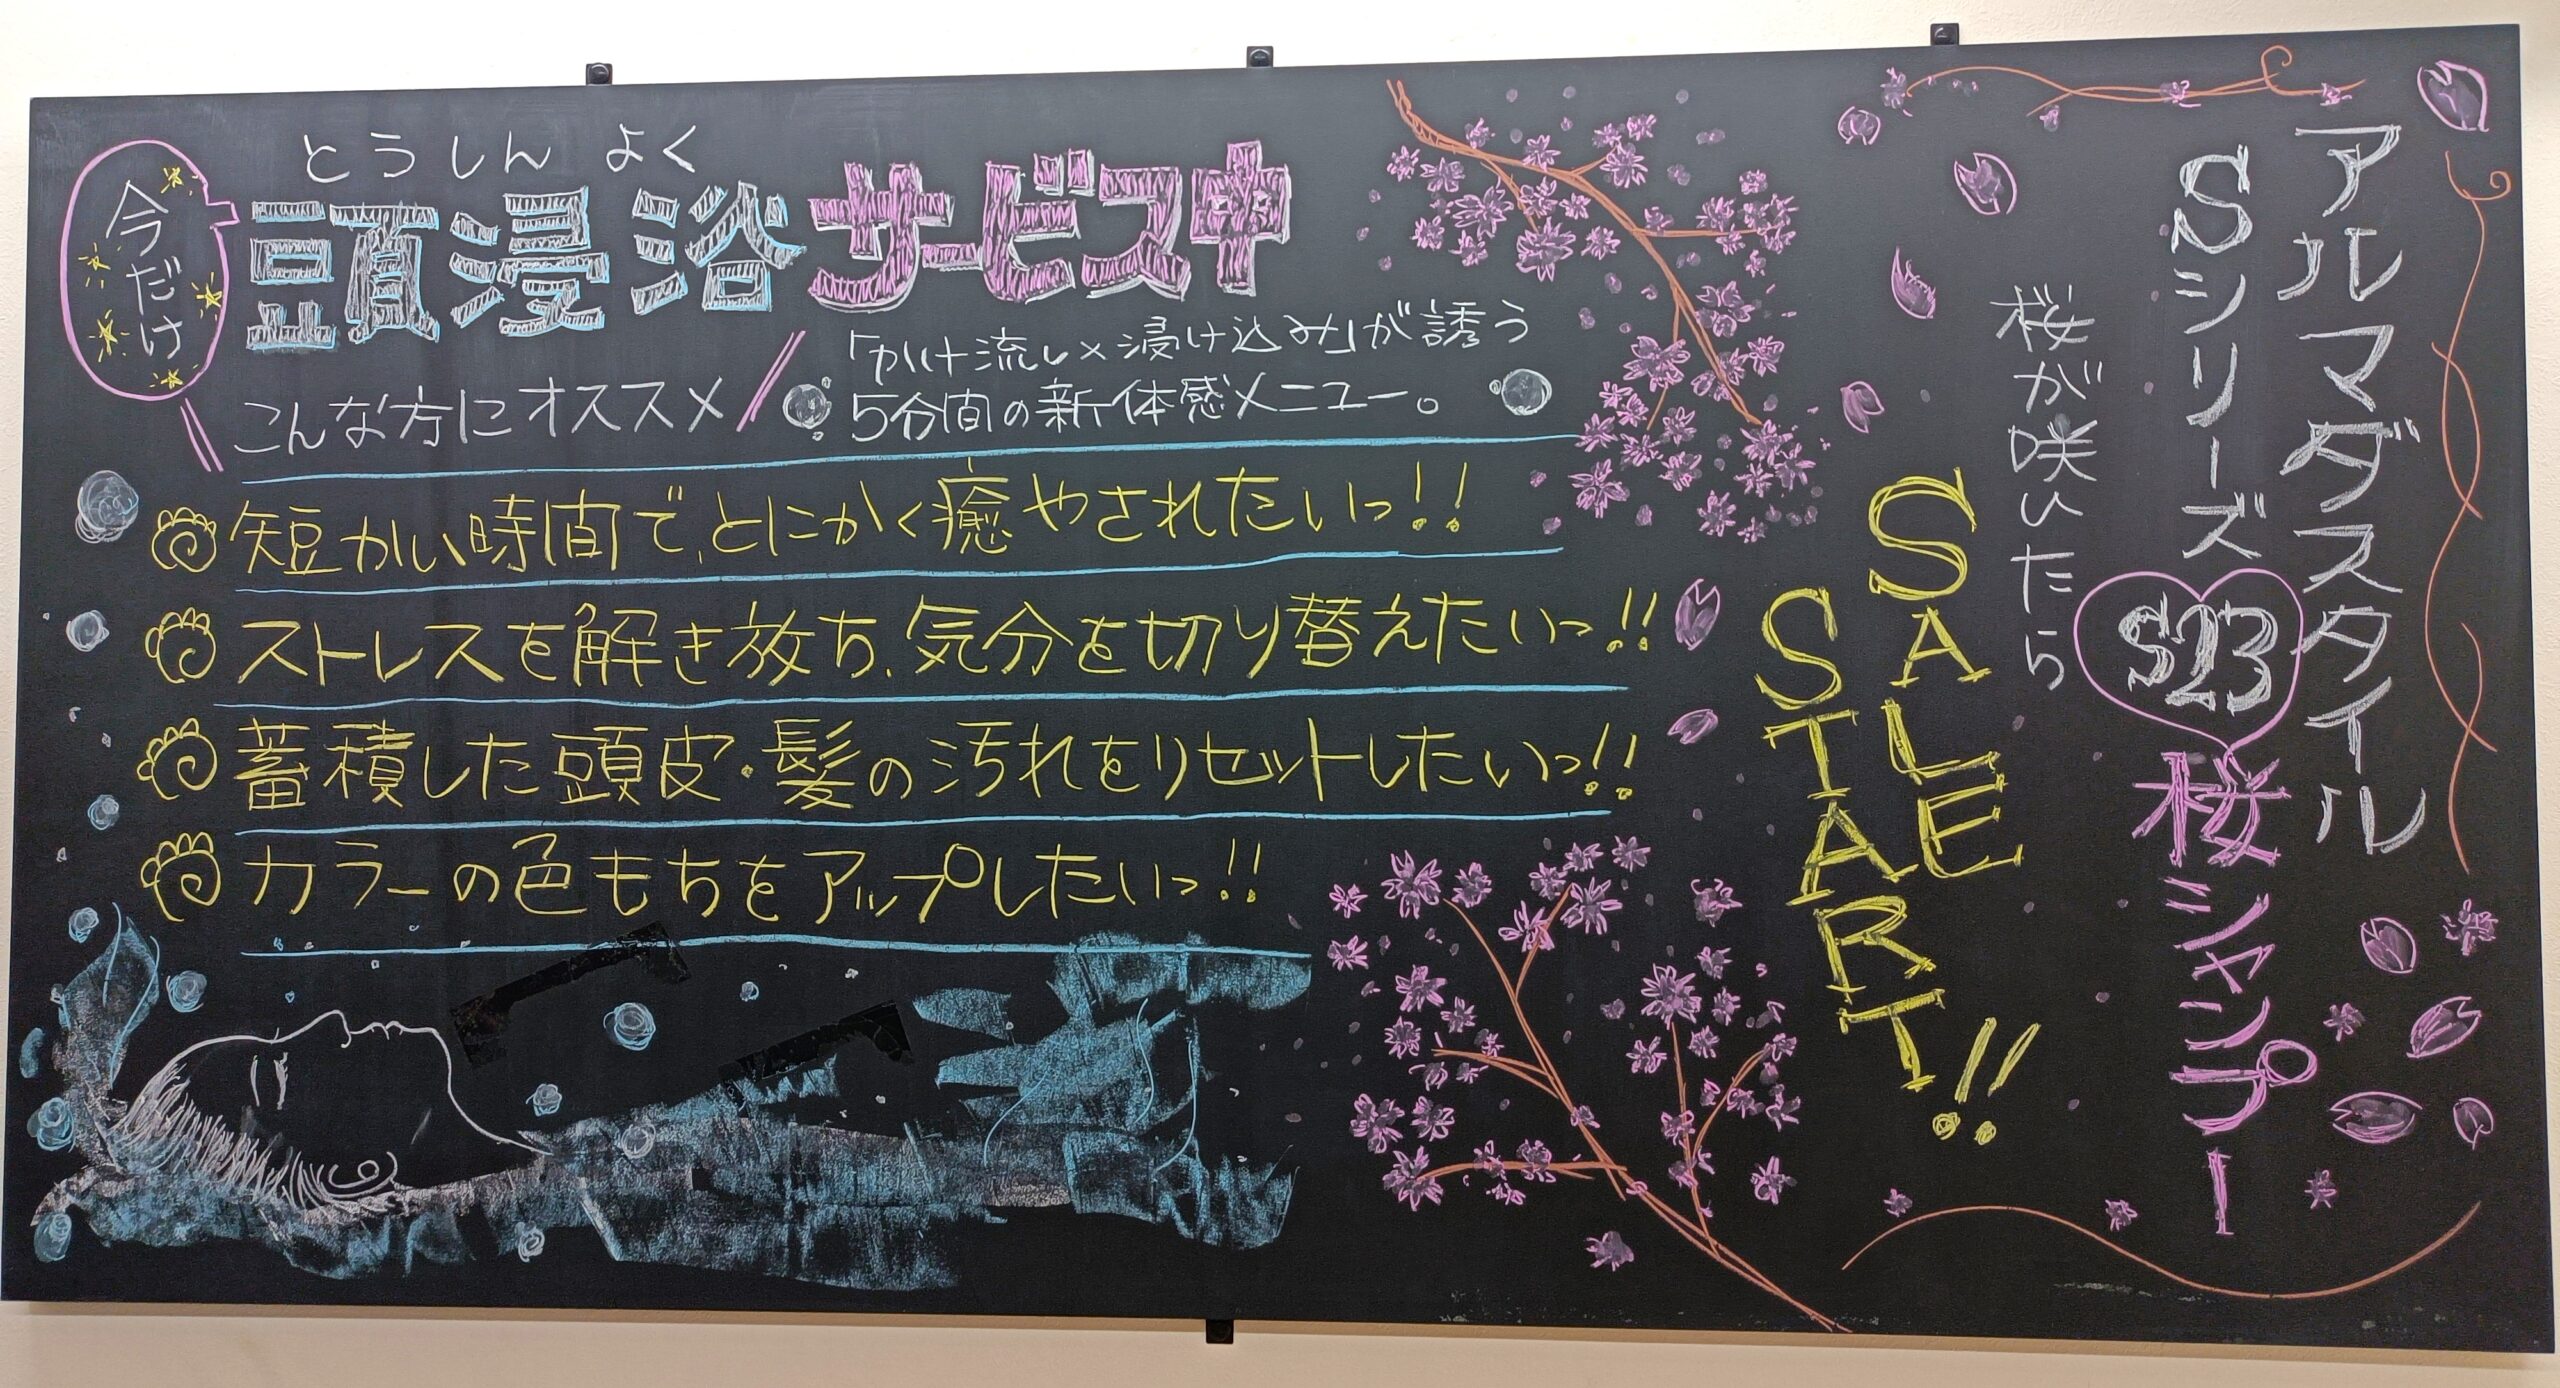 今だけ
とうしんよく
頭浸浴サービス中
こんな方にオススメ
「かけ流し×浸け込み」が誘う
5分間の新体感メニュー。
短かい時間で、とにかく癒やされたいっ!!
ストレスを解き放ち、気分を切り替えたいっ!!
蓄積した頭皮・髪の汚れをリセットしたいっ!!
カラーの色もちをアップしたいっ!!
アルマダスタイル
Sシリーズ
S23
桜シャンプー
桜が咲いたら
SALE
START!!